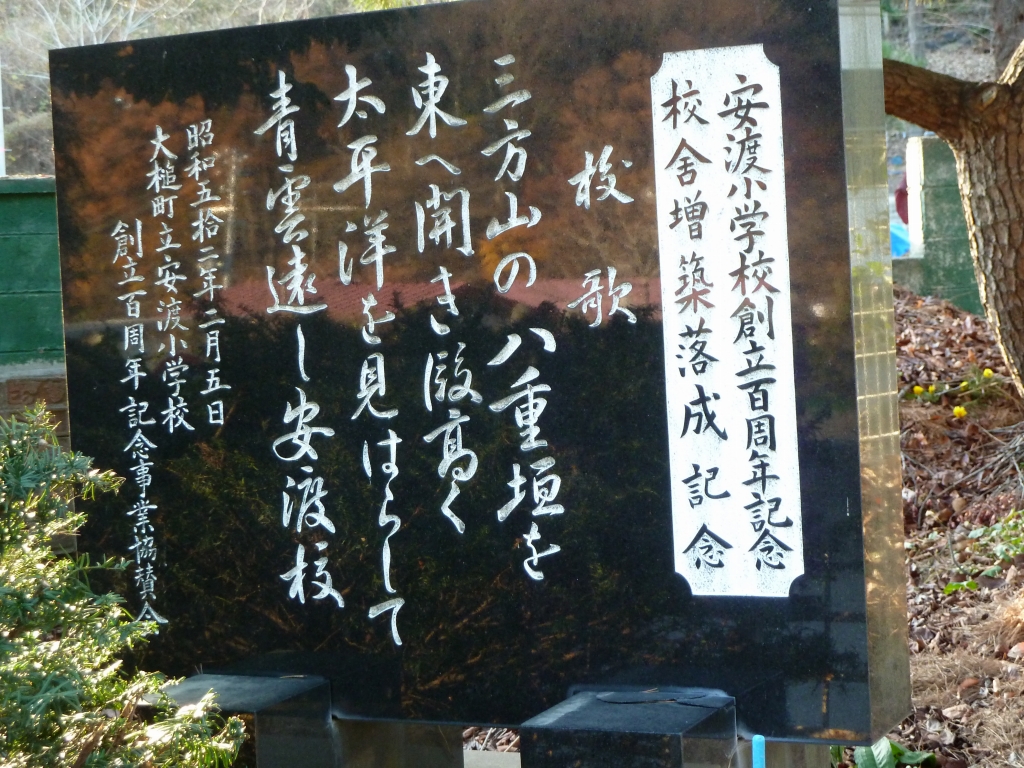 安渡小学校創立百周年記念
校舎増築落成記念
校歌
三方山の八重垣を
東へ開き殿高く
太平洋を見はらして
青雲遠し安渡校
昭和五拾二年二月五日
大槌町立安渡小学校
創立百周年記念事業協賛会